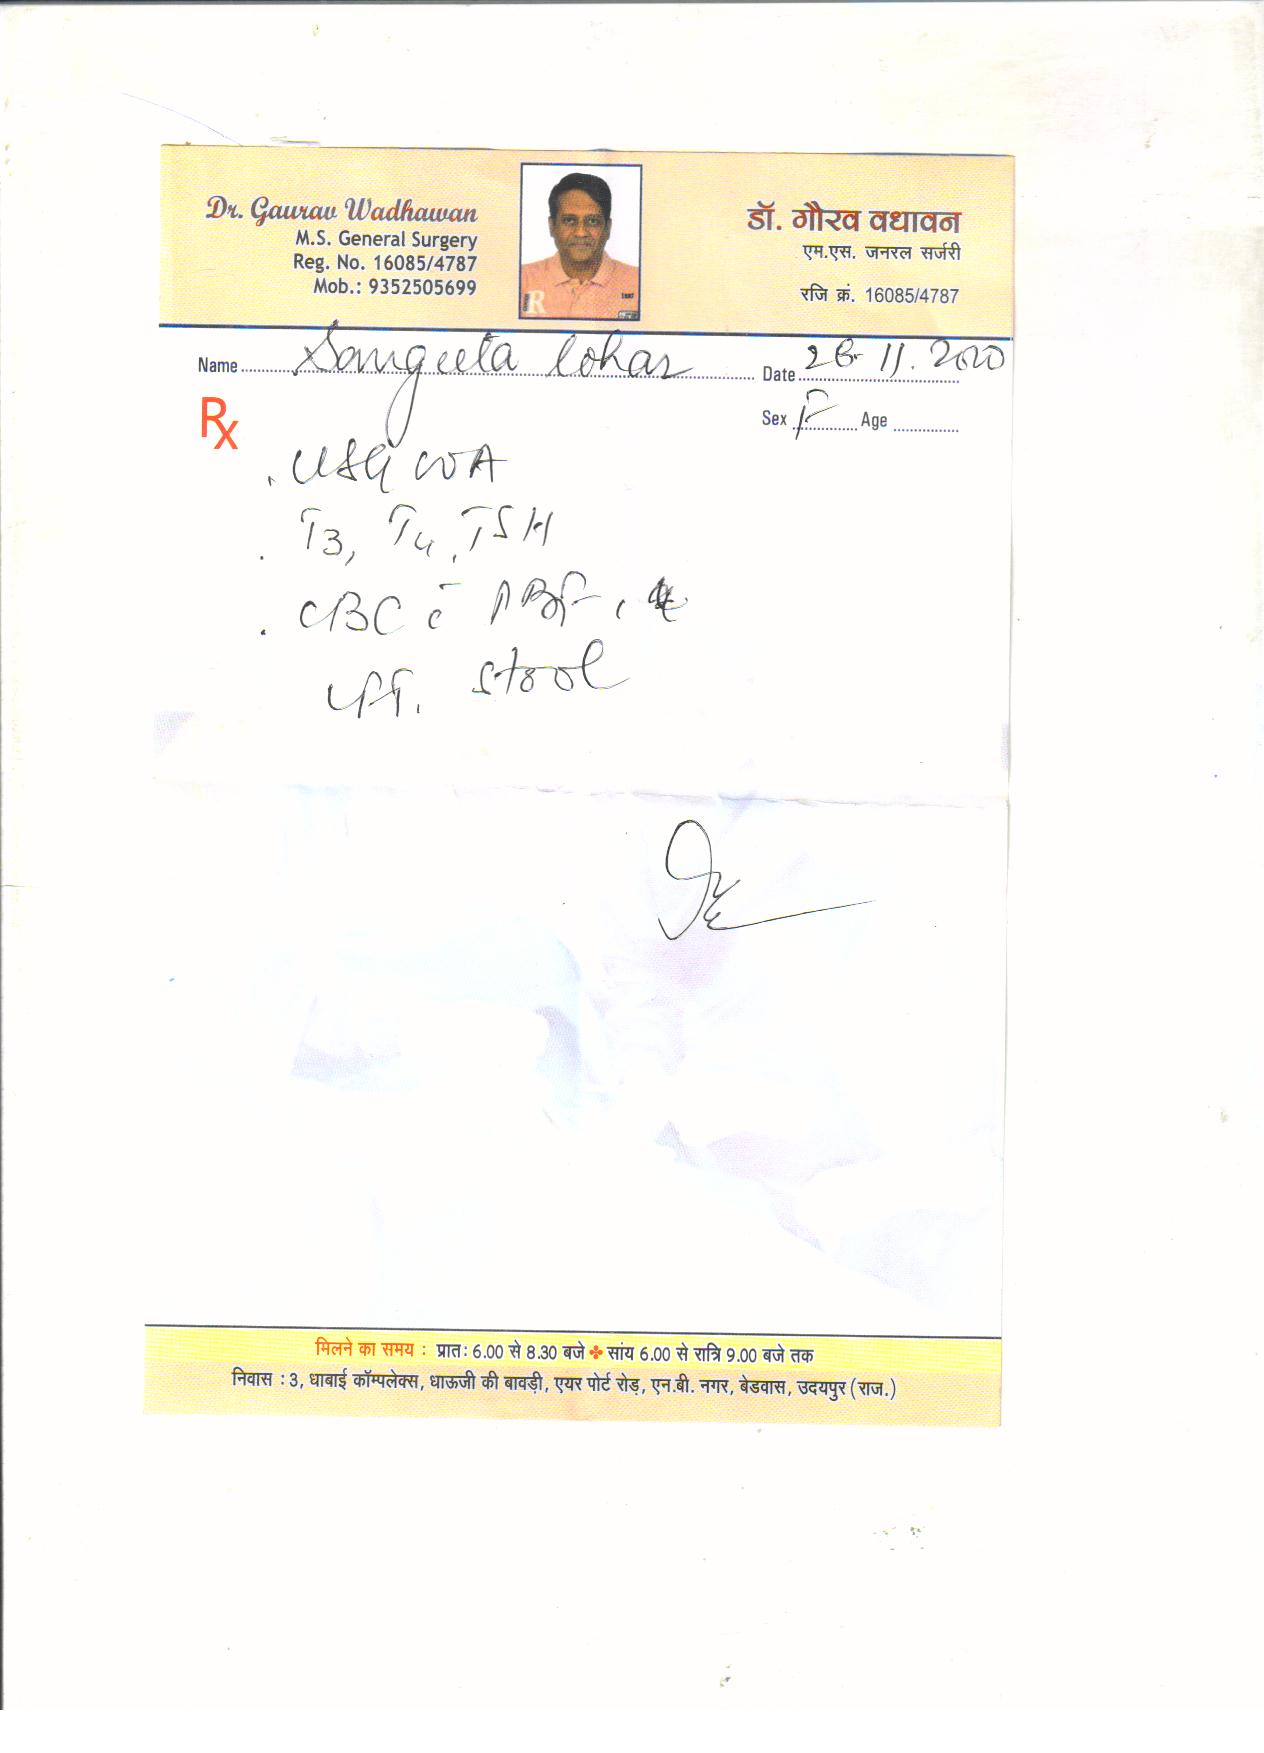 Dr. Gaurav Wadhawan
M.S. General Surgery
Reg. No. 16085/4787
Mob.: 9352505699
डॉ. गौरव वधावन
एम.एस. जनरल सर्जरी
रजि क्रं. 16085/4787
Name Sangeeta Lohar Date 26.11.2020
Sex F Age
Rx
. USG WA
. T3, T4, TSH
. CBC c̄ PBF,
Stool
मिलने का समय : प्रातः 6.00 से 8.30 बजे ✤ सांय 6.00 से रात्रि 9.00 बजे तक
निवास : 3, धाबाई कॉम्पलेक्स, धाऊजी की बावड़ी, एयर पोर्ट रोड़, एन.बी. नगर, बेडवास, उदयपुर (राज.)